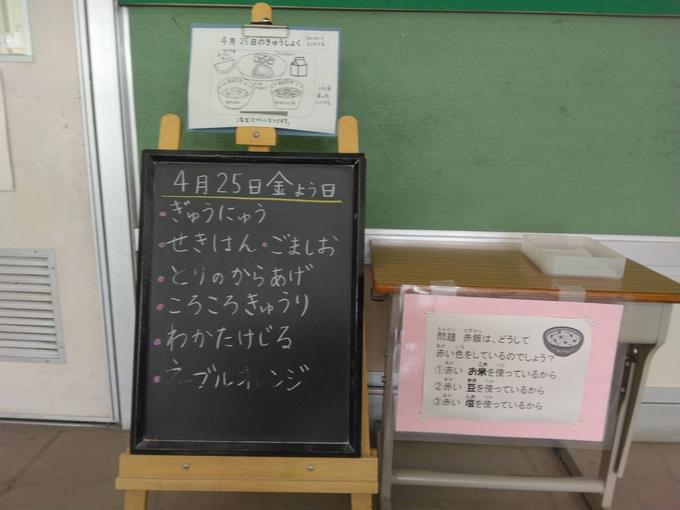 4月25日のきゅうしょく
4月25日金よう日
・ぎゅうにゅう
・せきはん・ごましお
・とりのからあげ
・ころころきゅうり
・わかたけじる
・ネーブルオレンジ
もんだい せきはん
問題 赤飯は、どうして
あか いろ
赤い色をしているのでしょう?
あか こめ つか
①赤い お米を使っているから
あか まめ つか
②赤い 豆を使っているから
あか しお つか
③赤い 塩を使っているから